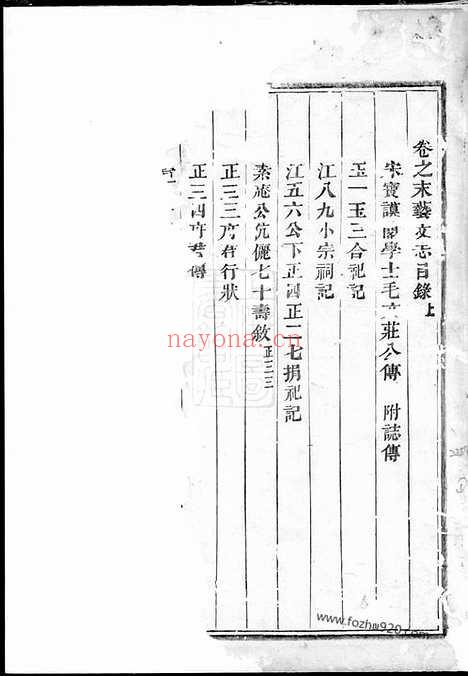 卷之末藝文志目錄上
宋寶謨閣學士毛文莊公傳 附誌傳
玉一玉三合祀記
江八九小宗祠記
江五六公下正四正一七捐祀記
素菴公伉儷七十壽敘 正三三
正三三府君行狀
正三四府君傳
nayona.cn
www.fozhw920.com